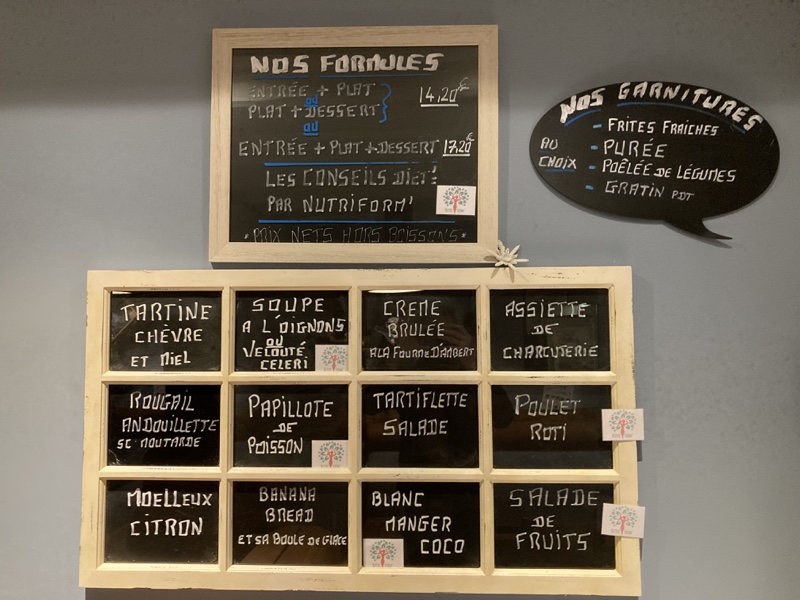 NOS FORMULES
ENTRÉE + PLAT
OU
PLAT + DESSERT
14,20€
OU
ENTRÉE + PLAT + DESSERT 17,20€
LES CONSEILS DIET'
PAR NUTRIFORM'
*PRIX NETS HORS BOISSONS*
NOS GARNITURES
AU CHOIX
- FRITES FRAICHES
- PURÉE
- POÊLÉE DE LÉGUMES
- GRATIN PDT
TARTINE
CHÈVRE
ET MIEL
SOUPE
A L'OIGNONS
OU
VELOUTÉ
CELERI
CREME
BRULÉE
A LA FOURME D'AMBERT
ASSIETTE
DE
CHARCUTERIE
ROUGAIL
ANDOUILLETTE
SC MOUTARDE
PAPILLOTE
DE
POISSON
TARTIFLETTE
SALADE
POULET
ROTI
MOELLEUX
CITRON
BANANA
BREAD
ET SA BOULE DE GLACE
BLANC
MANGER
COCO
SALADE
DE
FRUITS